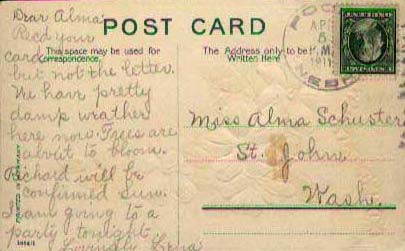 POST CARD
This space may be used for
correspondence.
The Address only to be
Written Here
Dear Alma:
Recd your
card
but not the letter.
We have pretty
damp weather
here now. Trees are
about to bloom.
Richard will be
confirmed Sun.
I am going to a
party tonight
Lovingly Lena
Miss Alma Schuster
St. John
Wash.
AP
5
P.M.
1911
NEBR
PRINTED IN GERMANY